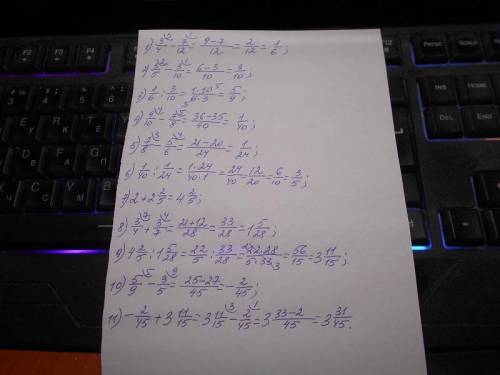 1) 3/4 - 7/12 = (9-7)/12 = 2/12 = 1/6;
2) 3/5 - 3/10 = (6-3)/10 = 3/10;
3) 1/6 : 3/10 = (1·10)/(6·3) = 5/9;
4) 9/10 - 7/8 = (36-35)/40 = 1/40;
5) 7/8 - 5/6 = (21-20)/24 = 1/24;
6) 1/40 : 1/24 = (1·24)/(40·1) = 24/40 = 12/20 = 6/10 = 3/5;
7) 2 + 2 2/5 = 4 2/5;
8) 3/4 + 3/7 = (21+12)/28 = 33/28 = 1 5/28;
9) 4 2/5 : 1 5/28 = 22/5 : 33/28 = (22·28)/(5·33) = 56/15 = 3 11/15;
10) 5/9 - 3/5 = (25-27)/45 = - 2/45;
11) - 2/45 + 3 11/15 = 3 11/15 - 2/45 = 3 (33-2)/45 = 3 31/45.